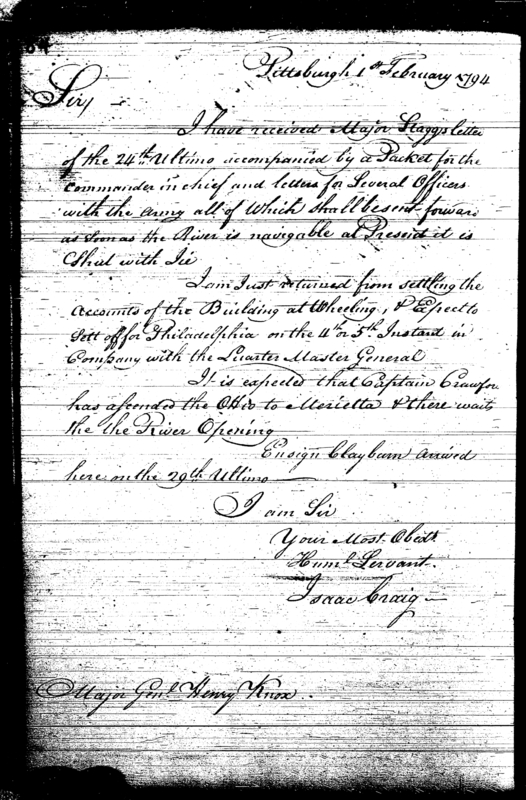 Pittsburgh 1st February 1794
Sir,
I have received Major Staggs letter
of the 24th Ultimo accompanied by a Packet for the
Commander in chief and letters for Several Officers
with the Army all of Which shall be sent forward
as soon as the River is navigable at Present it is
Shut with Ice
I am Just returned from settling the
Accounts of the Building at Wheeling, & Expect to
Sett off for Philadelphia on the 4th or 5th Instant in
Company with the Quarter Master General
It is expected that Captain Crawfor
has ascended the Ohio to Merietta & there waits
the the River Opening
Ensign Clayburn arrived
here on the 29th Ultimo
I am Sir
Your Most Obedt
Huml Servant.
Isaac Craig
Major Genl Henry Knox.